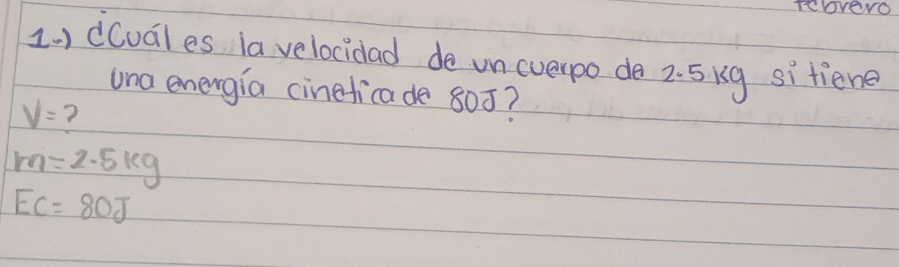 febrero
1.-) ¿Cuál es la velocidad de un cuerpo de 2.5 kg si tiene
una energía cinetica de 80J?
V=?
m=2.5 kg
Ec= 80J